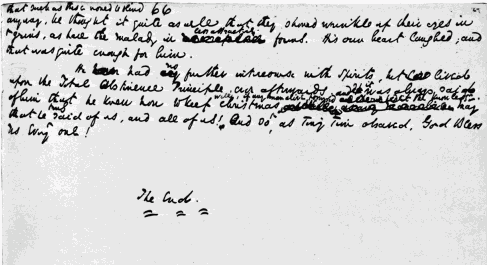 that such as these would be blind 66
anyway, he thought it quite as well that they should wrinkle up their eyes in
grins, as have the malady in less attractive forms. His own heart laughed; and
that was quite enough for him.
He had no further intercourse with Spirits, but lived
upon the Total Abstinence Principle, ever afterwards; and it was always said
of him that he knew how to keep Christmas well, if any man alive possessed the knowledge. May
that be said of us, and all of us! And so, as Tiny Tim observed, God Bless
Us Every one!
The End.